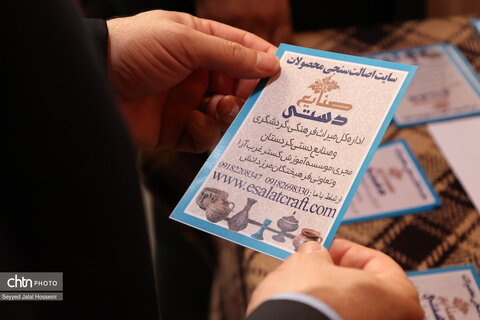 سایت اصالت سنجی محصولات
صنایع
دستی
اداره کل میراث فرهنگی، گردشگری
و صنایع دستی کردستان
مجری: موسسه آموزش گستر غرب آرا
و تعاونی فرهیختگان مرز دانش
ارتباط با ما: 09182698330 09182208347
www.esalatcraft.com
chtn PHOTO
Seyyed Jalal Hosseini